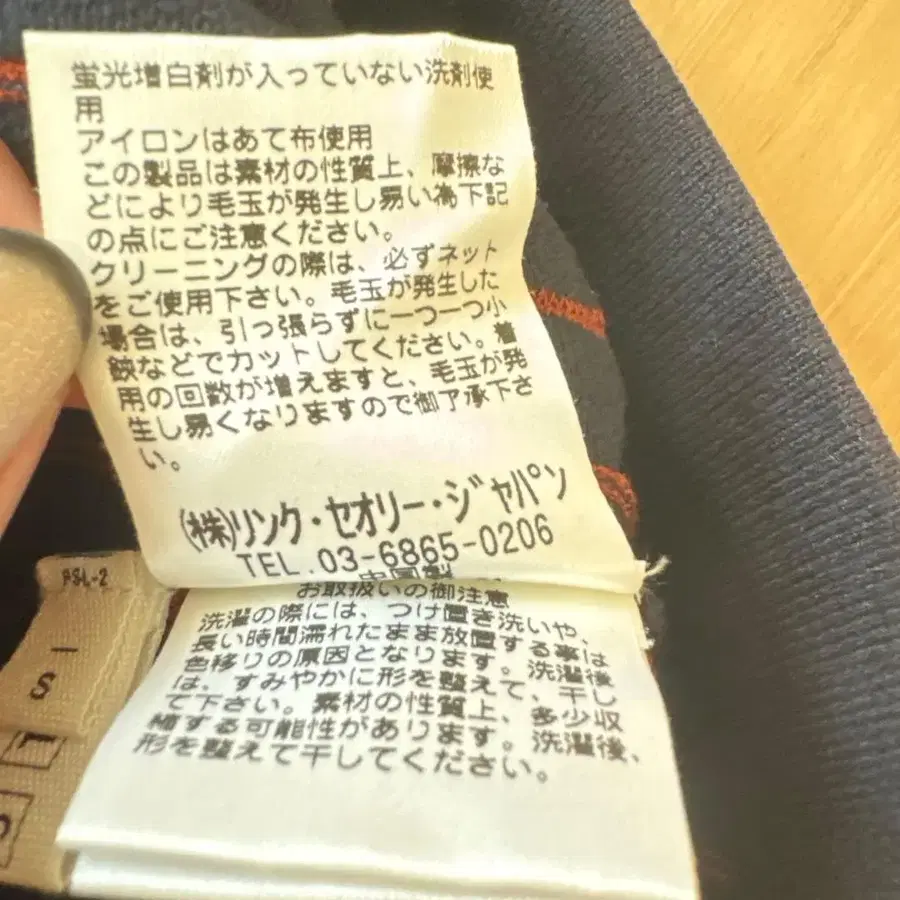 蛍光増白剤が入っていない洗剤使
用
アイロンはあて布使用
この製品は素材の性質上、摩擦な
どにより毛玉が発生し易い為下記
の点にご注意ください。
クリーニングの際は、必ずネット
をご使用下さい。毛玉が発生した
場合は、引っ張らずに一つ一つ小
鋏などでカットしてください。着
用の回数が増えますと、毛玉が発
生し易くなりますので御了承下さ
い。
(株)リンク・セオリー・ジャパン
TEL.03-6865-0206
中国製
お取扱いの御注意
洗濯の際には、つけ置き洗いや、
長い時間濡れたまま放置する事は
色移りの原因となります。洗濯後
は、すみやかに形を整えて、干し
て下さい。素材の性質上、多少収
縮する可能性があります。洗濯後、
形を整えて干してください。
PSL-2
S